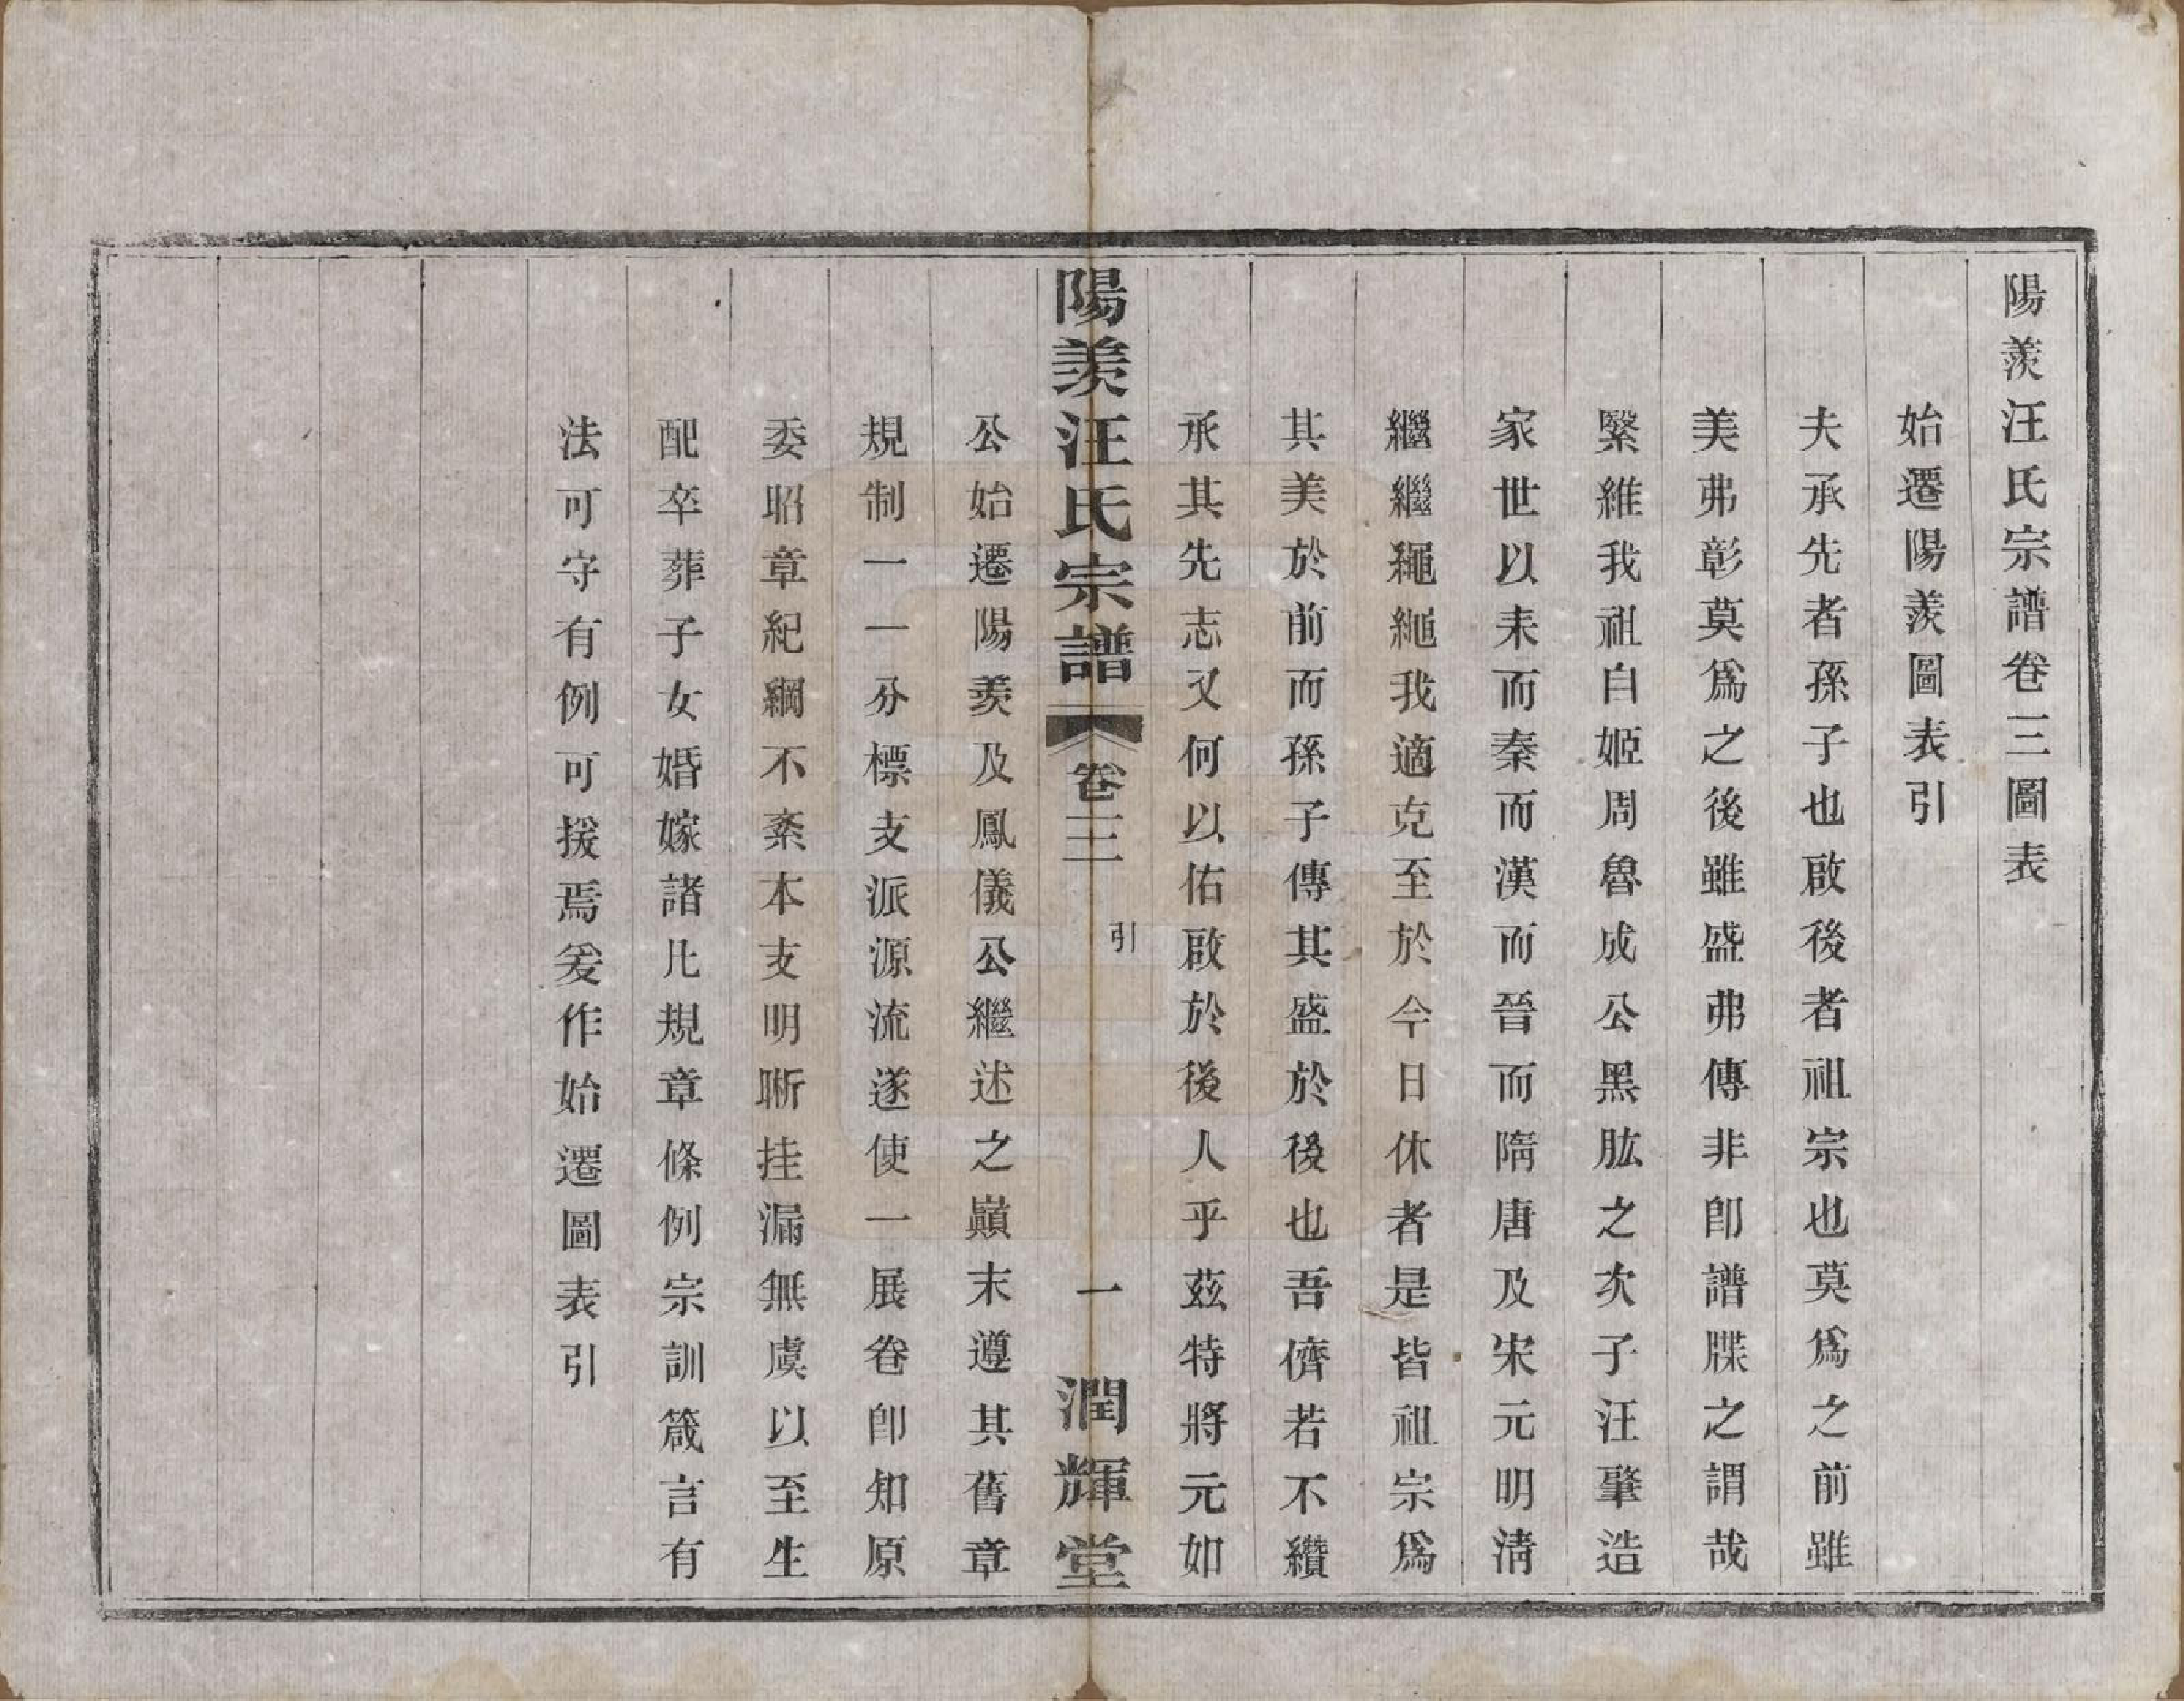 陽羨汪氏宗譜卷三圖表
始遷陽羨圖表引
夫承先者孫子也啟後者祖宗也莫爲之前雖
美弗彰莫爲之後雖盛弗傳非卽譜牒之謂哉
緊維我祖自姬周魯成公黑肱之次子汪肇造
家世以来而秦而漢而晉而隋唐及宋元明淸
繼繼繩繩我適克至於今日休者是皆祖宗爲
其美於前而孫子傳其盛於後也吾儕若不纘
承其先志又何以佑啟於後人乎茲特將元如
陽羨汪氏宗譜 卷三 引 一 潤輝堂
公始遷陽羨及鳳儀公繼述之巔末遵其舊章
規制一一分標支派源流遂使一展卷卽知原
委昭章紀綱不紊本支明晣挂漏無虞以至生
配卒葬子女婚嫁諸凡規章條例宗訓箴言有
法可守有例可援焉爰作始遷圖表引